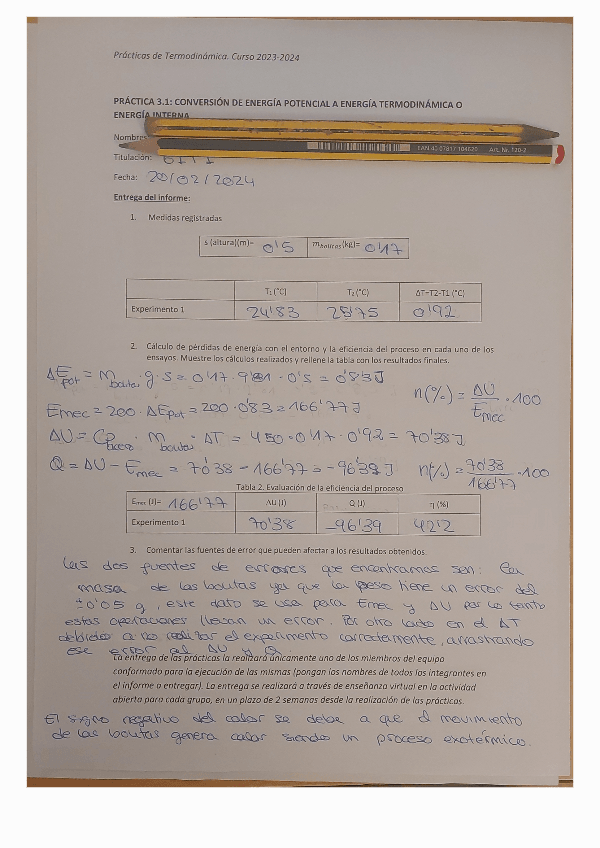 Prácticas de Termodinámica. Curso 2023-2024
PRÁCTICA 3.1: CONVERSIÓN DE ENERGÍA POTENCIAL A ENERGÍA TERMODINÁMICA O
ENERGÍA INTERNA
Nombres
EAN 40 07817 104620 Art. Nr. 120-2
Titulación:
Fecha: 20/02/2024
Entrega del informe:
1. Medidas registradas
s (altura)(m)= 0'5 m bolitas (kg)= 0'17
T₁ (°C) T₂ (°C) ΔT=T2-T1 (°C)
Experimento 1 24'83 25'75 0'92
2. Cálculo de pérdidas de energía con el entorno y la eficiencia del proceso en cada uno de los
ensayos. Muestre los cálculos realizados y rellene la tabla con los resultados finales.
ΔEpot = m bolitas · g · s = 0'17 · 9'81 · 0'5 = 0'83 J
n(%) = ΔU / Emec · 100
Emec = 200 · ΔEpot = 200 · 0'83 = 166'77 J
ΔU = Cp acero · m bolitas · ΔT = 450 · 0'17 · 0'92 = 70'38 J
Q = ΔU - Emec = 70'38 - 166'77 = -96'39 J n(%) = 70'38 / 166'77 · 100
Tabla 2. Evaluación de la eficiencia del proceso
Emec (J)= 166'77 ΔU (J) Q (J) η (%)
Experimento 1 70'38 -96'39 42'2
3. Comentar las fuentes de error que pueden afectar a los resultados obtenidos.
Las dos fuentes de errores que encontramos son: La
masa de las bolitas ya que la peso tiene un error del
±0'05 g, este dato se usa para Emec y ΔU por lo tanto
estas operaciones llevan un error. Por otro lado en el ΔT
debido a no realizar el experimento correctamente, arrastrando
ese error al ΔU y Q.
La entrega de las prácticas la realizará únicamente uno de los miembros del equipo
conformado para la ejecución de las mismas (pongan los nombres de todos los integrantes en
el informe a entregar). La entrega se realizará a través de enseñanza virtual en la actividad
abierta para cada grupo, en un plazo de 2 semanas desde la realización de las prácticas.
El signo negativo del calor se debe a que el movimiento
de las bolitas genera calor siendo un proceso exotérmico.